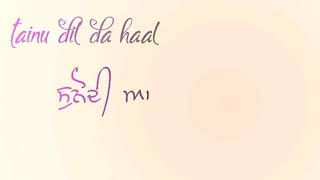 tainu dil da haal
ਸੁਨੌਦੀ ਆ